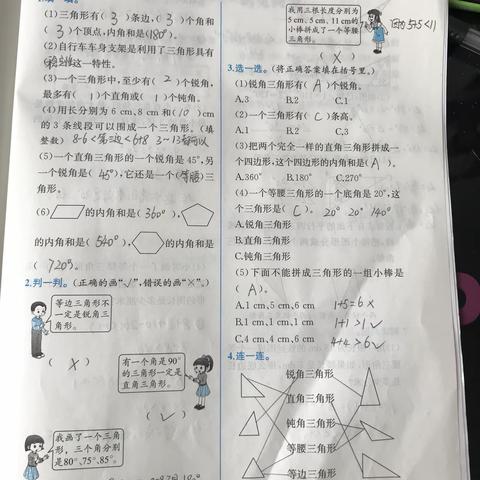 (1)三角形有(3)条边,(3)个角和
(3)个顶点,内角和是(180°)。
(2)自行车车身支架是利用了三角形具有
(稳定性)这一特性。
(3)一个三角形中,至少有(2)个锐角,
最多有(1)个直角或(1)个钝角。
(4)用长分别为 6 cm、8 cm 和(10)cm
的 3 条线段可以围成一个三角形。(填
整数) 8-6<第三边<6+8 3~13都可以
(5)一个直角三角形的一个锐角是 45°,另
一个锐角是(45°),它还是一个(等腰)三
角形。
(6) 的内角和是(360°),
的内角和是(540°), 的内角和是
(720°)。
2.判一判。(正确的画“√”,错误的画“×”。)
等边三角形不
一定是锐角三
角形。
(×)
有一个角是90°
的三角形一定是
直角三角形。
(√)
我画了一个三角
形,三个角分别
是80°、75°、85°。
我用三根长度分别为
5 cm、5 cm、11 cm的
小棒拼成了一个等腰
三角形。
5+5<11
(×)
3.选一选。(将正确答案填在括号里。)
(1)锐角三角形有(A)个锐角。
A.3 B.2 C.1
(2)一个三角形有(C)条高。
A.1 B.2 C.3
(3)把两个完全一样的直角三角形拼成一
个四边形,这个四边形的内角和是(A)。
A.360° B.180° C.270°
(4)一个等腰三角形的一个底角是 20°,这
个三角形是(C)。 20° 20° 140°
A.锐角三角形
B.直角三角形
C.钝角三角形
(5)下面不能拼成三角形的一组小棒是
(A)。
A.1 cm、5 cm、6 cm 1+5=6 ×
B.1 cm、1 cm、1 cm 1+1>1√
C.4 cm、4 cm、6 cm 4+4>6√
4.连一连。
锐角三角形
直角三角形
钝角三角形
等腰三角形
等边三角形